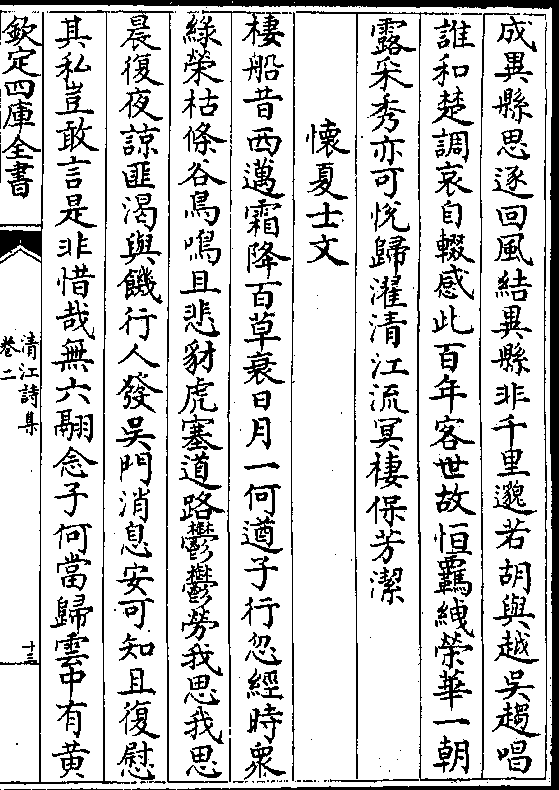 成異縣思逐回風結異縣非千里邈若胡與越吳趨唱
誰和楚調哀自輟感此百年客世故恒羈紲榮華一朝
露采秀亦可悅歸濯清江流冥棲保芳潔
懷夏士文
樓船昔西邁霜降百草衰日月一何遒子行忽經時衆
綠榮枯條谷鳥鳴且悲豺虎塞道路鬱鬱勞我思我思
晨復夜諒匪渴與饑行人發吳門消息安可知且復慰
其私豈敢言是非惜哉無六翮念子何當歸雲中有黄
欽定四庫全書
清江詩集
卷二
十三